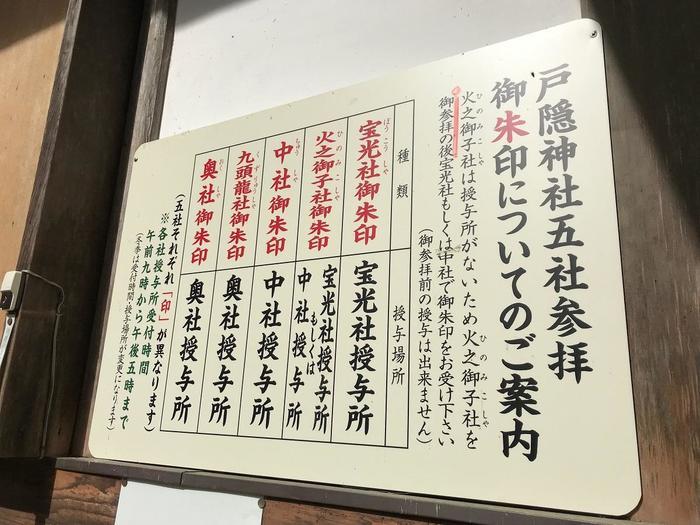 戸隠神社五社参拝
御朱印についてのご案内
火之御子社は授与所がないため火之御子社を
御参拝の後宝光社もしくは中社で御朱印をお受け下さい
(御参拝前の授与は出来ません)
種類
授与場所
宝光社御朱印
宝光社授与所
火之御子社御朱印
宝光社授与所
もしくは
中社授与所
中社御朱印
中社授与所
九頭龍社御朱印
奥社授与所
奥社御朱印
奥社授与所
(五社それぞれ「印」が異なります)
※各社授与所受付時間
午前九時から午後五時まで
(冬季は受付時間・授与場所が変更になります)